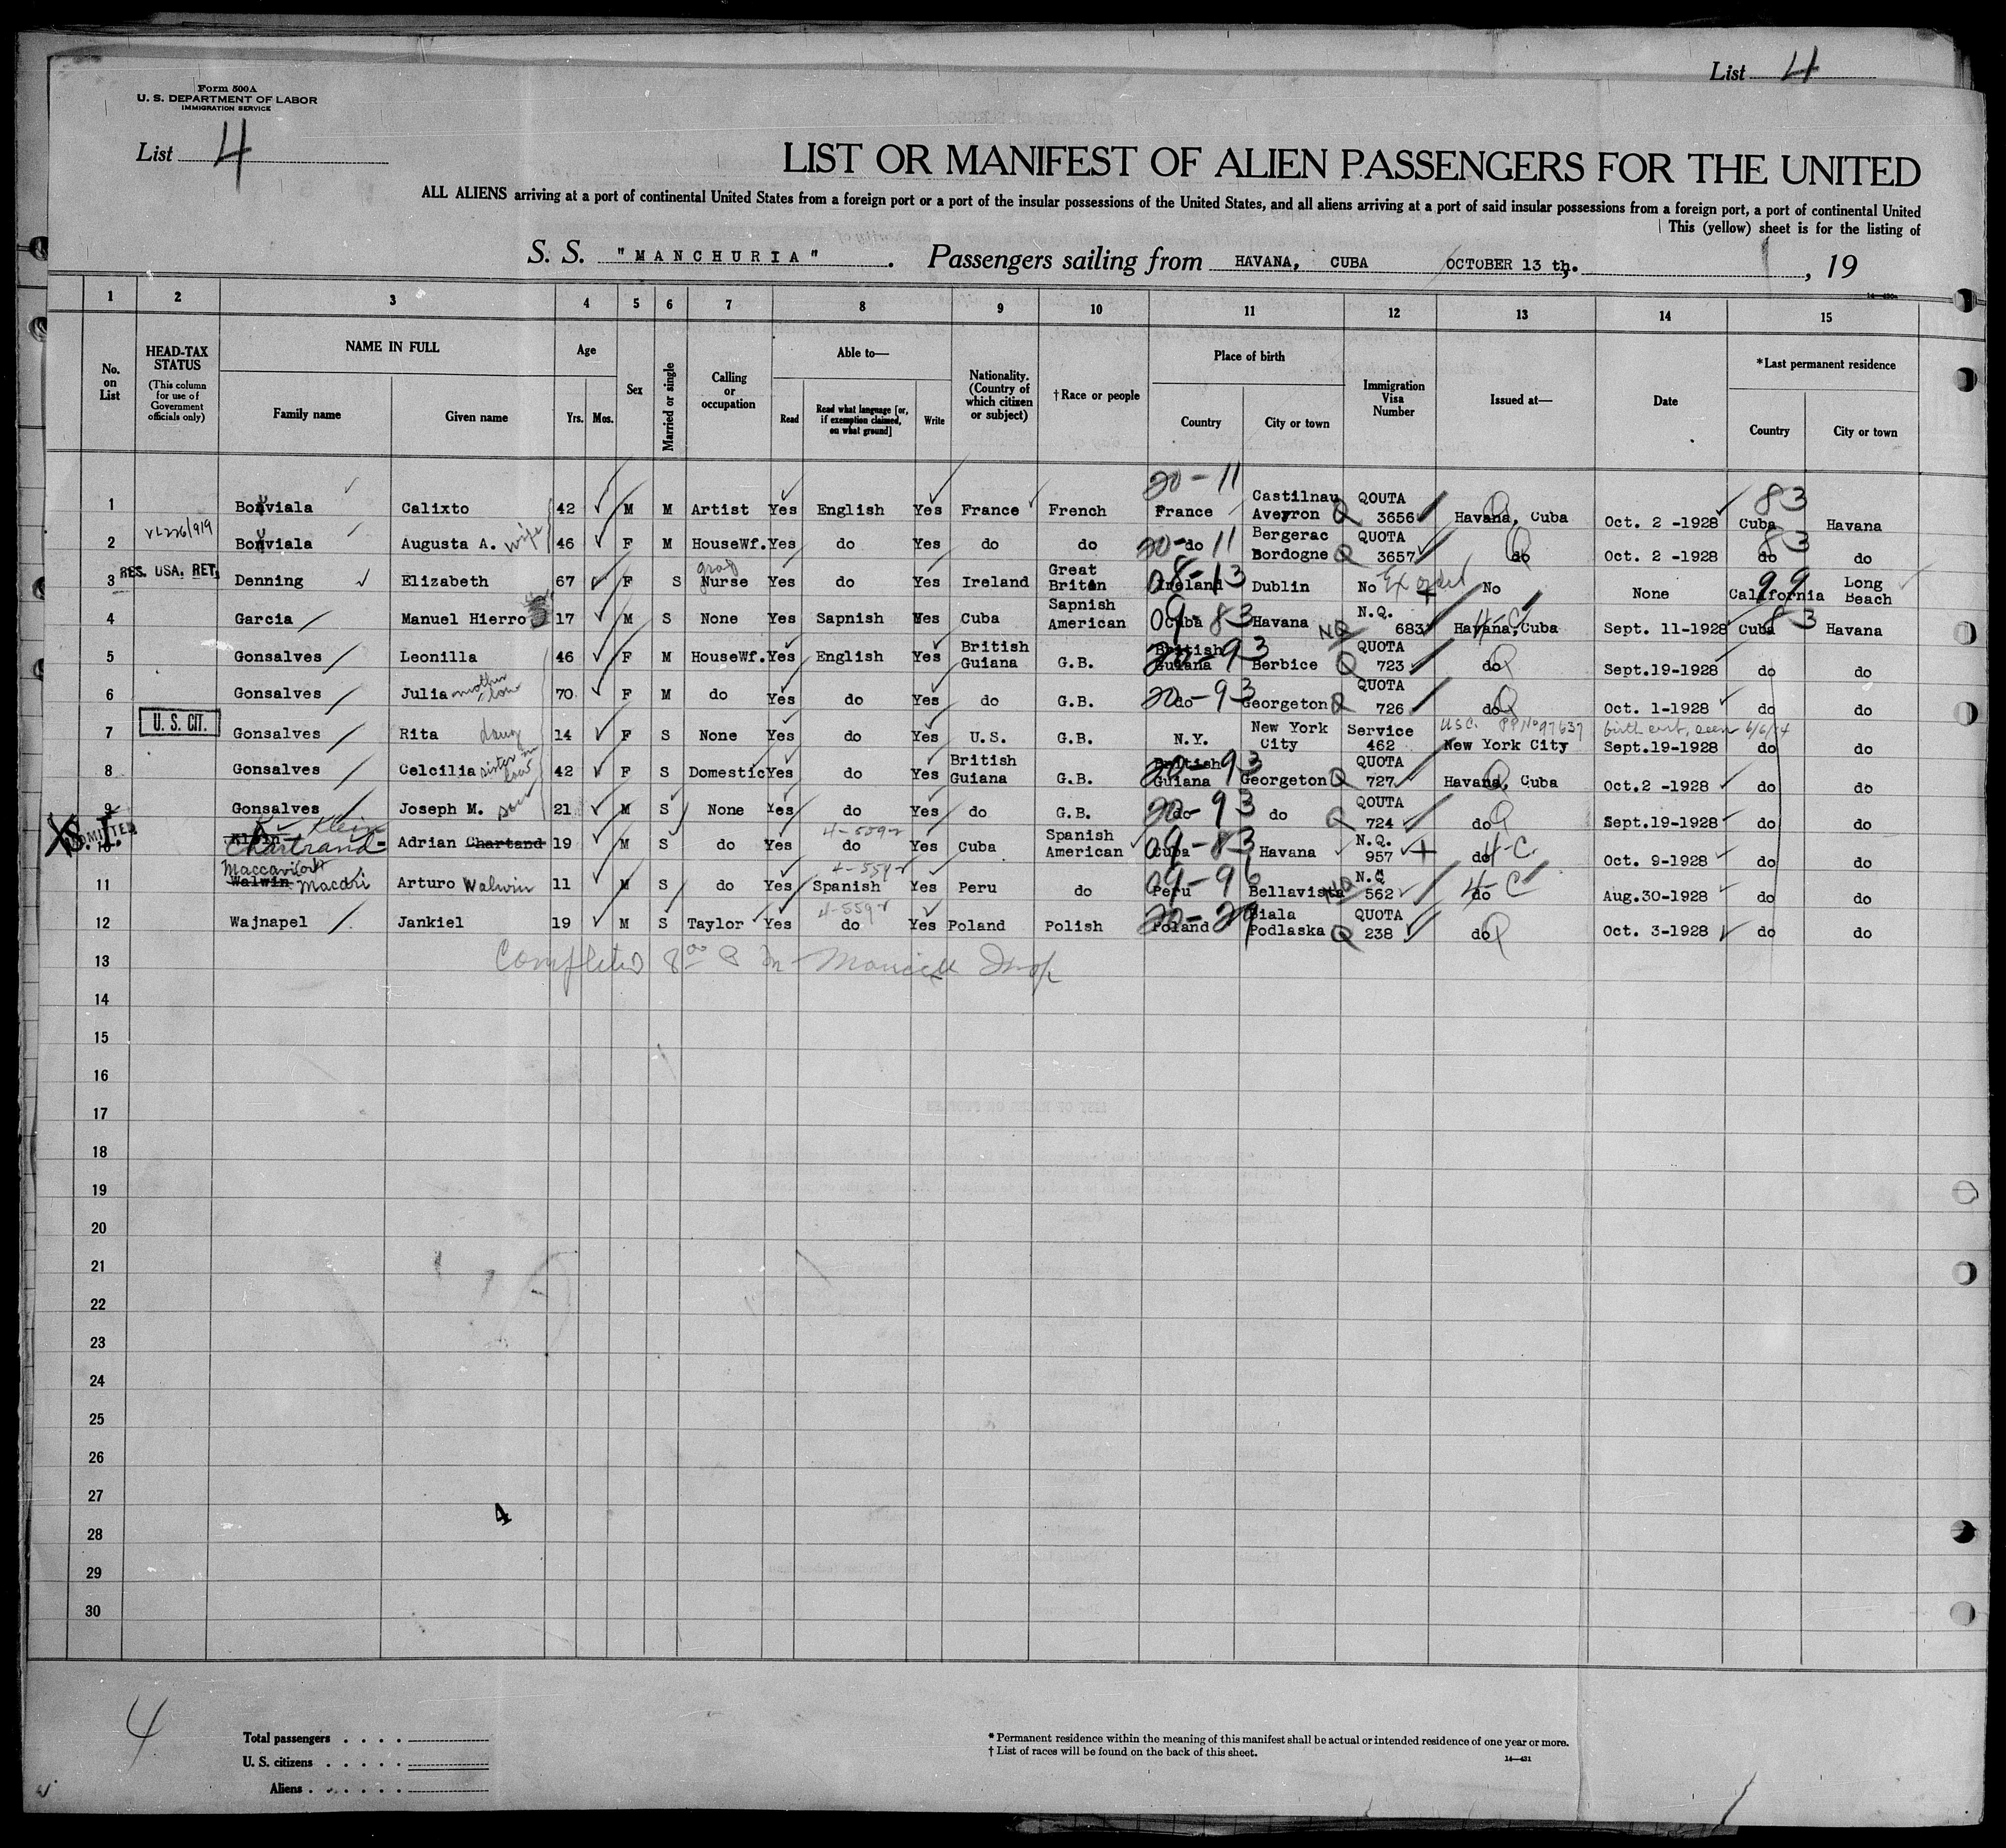 List 4
Form 500A
U. S. DEPARTMENT OF LABOR
IMMIGRATION SERVICE
List 4
LIST OR MANIFEST OF ALIEN PASSENGERS FOR THE UNITED
ALL ALIENS arriving at a port of continental United States from a foreign port or a port of the insular possessions of the United States, and all aliens arriving at a port of said insular possessions from a foreign port, a port of continental United
This (yellow) sheet is for the listing of
S. S. "MANCHURIA". Passengers sailing from HAVANA, CUBA OCTOBER 13 th., 19
1 2 3 4 5 6 7 8 9 10 11 12 13 14 15
No. on List
HEAD-TAX STATUS
(This column for use of Government officials only)
NAME IN FULL
Family name Given name
Age
Yrs. Mos.
Sex
Married or single
Calling or occupation
Able to—
Read
Read what language [or, if exemption claimed, on what ground]
Write
Nationality. (Country of which citizen or subject)
†Race or people
Place of birth
Country City or town
Immigration Visa Number
Issued at—
Date
*Last permanent residence
Country City or town
20-11 83
1 Bonviala Calixto 42 M M Artist Yes English Yes France French France Castilnau Aveyron Q QOUTA 3656 Havana, Cuba Q Oct. 2 -1928 Cuba Havana
2 Bonviala Augusta A. wife 46 F M HouseWf. Yes do Yes do do 20-11 do Bergerac Dordogne Q QUOTA 3657 do Q Oct. 2 -1928 83 do do
3 RES. USA. RET. Denning Elizabeth 67 F S grad Nurse Yes do Yes Ireland Great Briten 08-13 Ireland Dublin No Ex No None 99 California Long Beach
4 Garcia Manuel Hierro 17 M S None Yes Sapnish Yes Cuba Sapnish American 09-83 Cuba Havana NQ N.Q. 683 Havana, Cuba 4-C Sept. 11-1928 83 Cuba Havana
5 Gonsalves Leonilla 46 F M HouseWf. Yes English Yes British Guiana G.B. 20-93 British Guiana Berbice Q QUOTA 723 do Q Sept.19-1928 do do
6 Gonsalves Julia mother in law 70 F M do Yes do Yes do G.B. 20-93 do Georgeton Q QUOTA 726 do Q Oct. 1-1928 do do
7 U. S. CIT. Gonsalves Rita daug 14 F S None Yes do Yes U.S. G.B. N.Y. New York City Service 462 U.S.C. PP No 97637 New York City birth cert. seen Sept.19-1928 do do
8 Gonsalves Celcilia sister in law 42 F S Domestic Yes do Yes British Guiana G.B. 20-93 British Guiana Georgeton Q QUOTA 727 Havana, Cuba Q Oct.2 -1928 do do
9 Gonsalves Joseph M. son 21 M S None Yes do Yes do G.B. 20-93 do do Q QOUTA 724 do Q Sept.19-1928 do do
10 X S. I. ADMITTED Klein Klein Chartrand Adrian Chartand 19 M S do Yes 4-559 do Yes Cuba Spanish American 09-83 Cuba Havana N.Q. 957 do 4-C Oct. 9-1928 do do
11 Walwin Macari Arturo Walwin 11 M S do Yes 4-559 Spanish Yes Peru do 09-96 Peru Bellavista NQ N.Q 562 do 4-C Aug.30-1928 do do
12 Wajnapel Jankiel 19 M S Taylor Yes 4-559 do Yes Poland Polish 20-29 Poland Biala Podlaska Q QUOTA 238 do Q Oct. 3-1928 do do
13 Completed 8 00
14
15
16
17
18
19
20
21
22
23
24
25
26
27
4
28
29
30
4
Total passengers
U. S. citizens
Aliens
*Permanent residence within the meaning of this manifest shall be actual or intended residence of one year or more.
†List of races will be found on the back of this sheet.
14—431